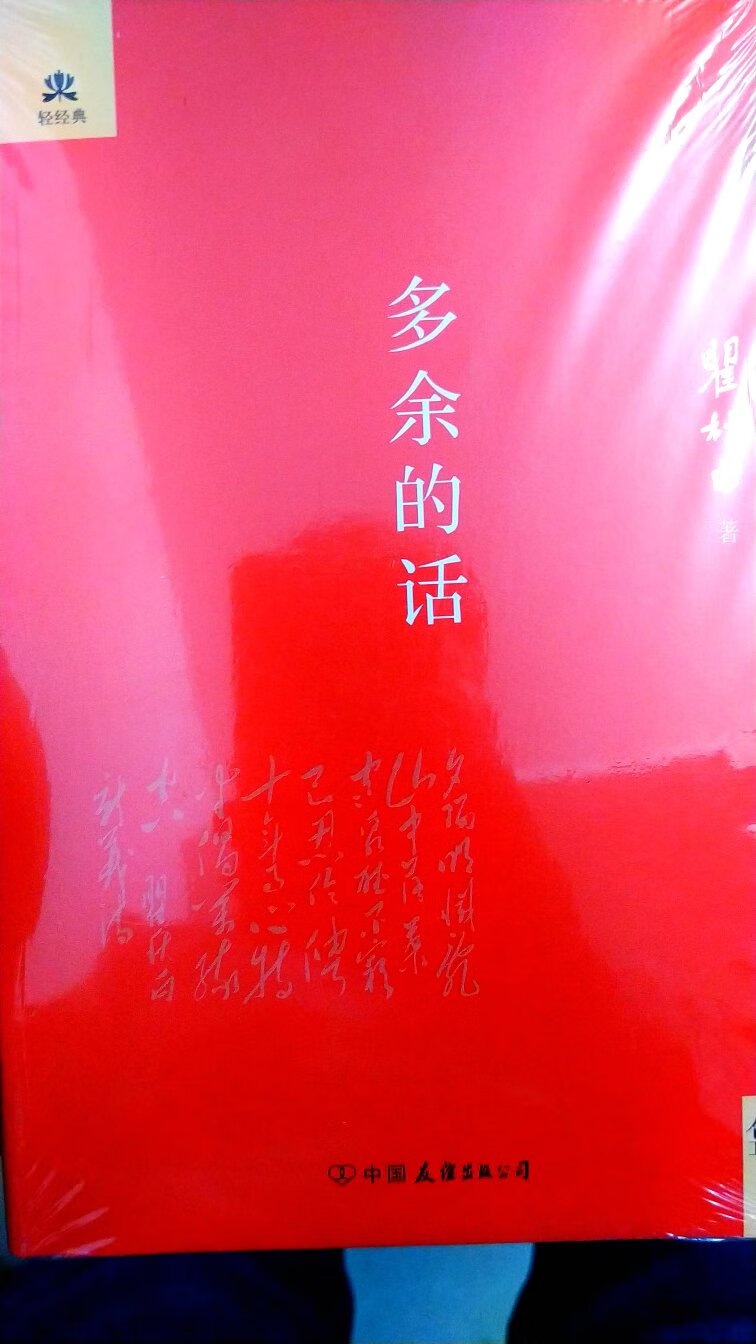 轻经典
多余的话
瞿秋白
著
夕陽明滅亂
山中落葉
寒泉聽不窮
已忍伶俜
十年事心持
半偈萬緣
空 瞿秋白
中国友谊出版公司